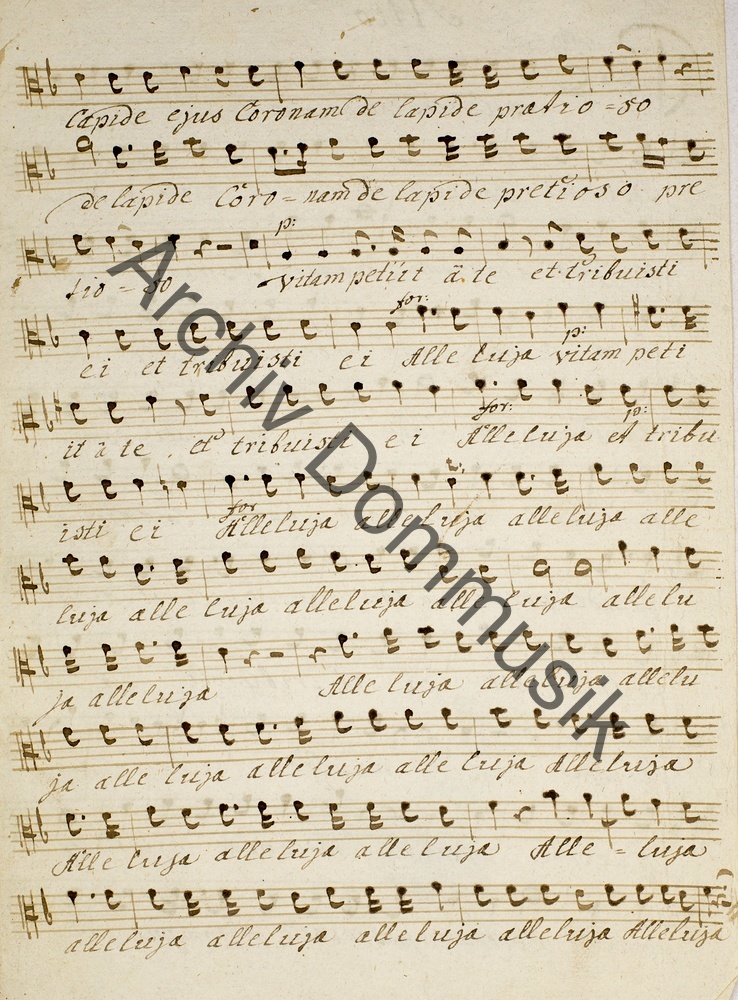 lapide ejus Coronam de lapide pratio = so
de lapide Coro = nam de lapide pretioso pre
p:
tio = so vitam petiit à te et tribuisti
for:
p:
ei et tribuisti ei Alleluja vitam peti
for: p:
it à te et tribuisti ei Alleluja et tribu
for
isti ei Alleluja alleluja alleluja alle
luja alleluja alleluja alleluja allelu
ja alleluja Alleluja alleluja allelu
ja alleluja alleluja alleluja Alleluja
Alleluja alleluja alleluja Alle = luja
alleluja alleluja alleluja alleluja Alleluja
Archiv Dommusik